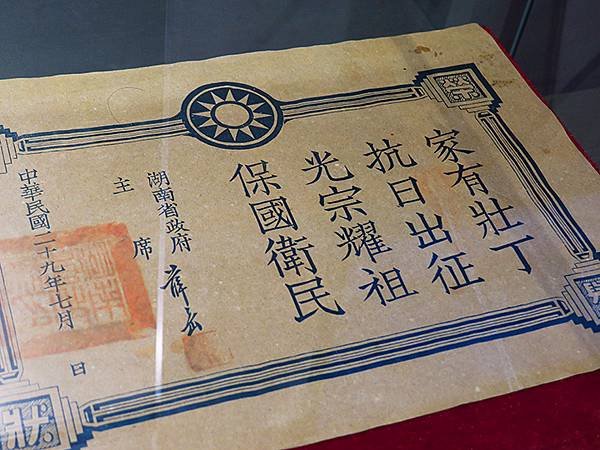 家有壯丁
抗日出征
光宗耀祖
保國衛民
湖南省政府
主席
薛岳
中華民國二十九年七月 日